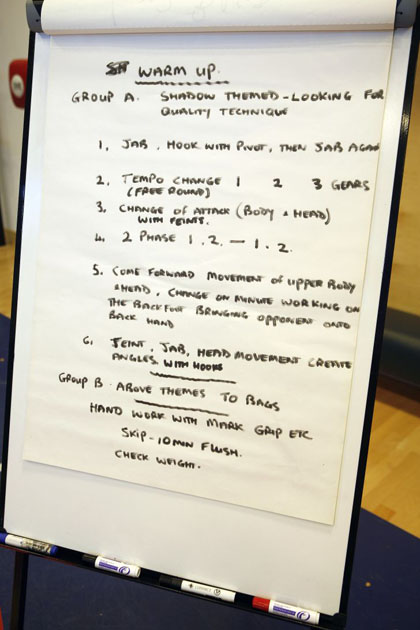 WARM UP.
GROUP A. SHADOW THEMED - LOOKING FOR
QUALITY TECHNIQUE
1, JAB, HOOK WITH PIVOT, THEN JAB AGAIN
2, TEMPO CHANGE 1 2 3 GEARS
(FREE ROUND)
3, CHANGE OF ATTACK (BODY & HEAD)
WITH FEINTS.
4. 2 PHASE 1.2. - 1.2.
5. COME FORWARD MOVEMENT OF UPPER BODY
& HEAD, CHANGE ON MINUTE WORKING ON
THE BACK FOOT BRINGING OPPONENT ONTO
BACK HAND
6. FEINT, JAB, HEAD MOVEMENT CREATE
ANGLES WITH HOOKS
GROUP B. ABOVE THEMES TO BAGS
HAND WORK WITH MARK GRIP ETC
SKIP - 10 MIN FLUSH.
CHECK WEIGHT.